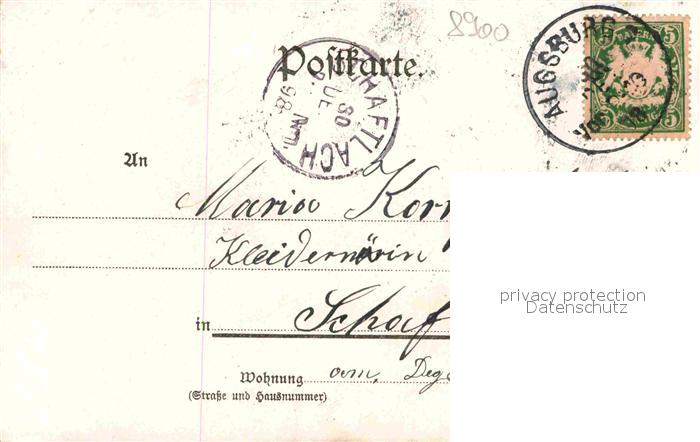 8900
Postkarte.
AUGSBURG
BAYERN
5 5
SCHAFTLACH
30
DE
98
An
Maria Kor
Kleidernärin
in Schaf
Wohnung am, Deg
(Straße und Hausnummer)
privacy protection
Datenschutz